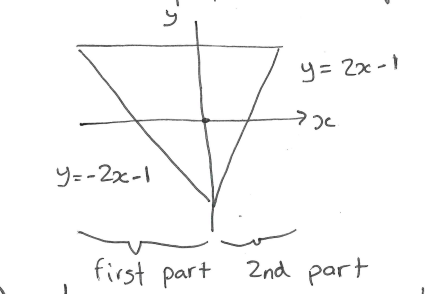 y
y = 2x-1
x
y=-2x-1
first part 2nd part